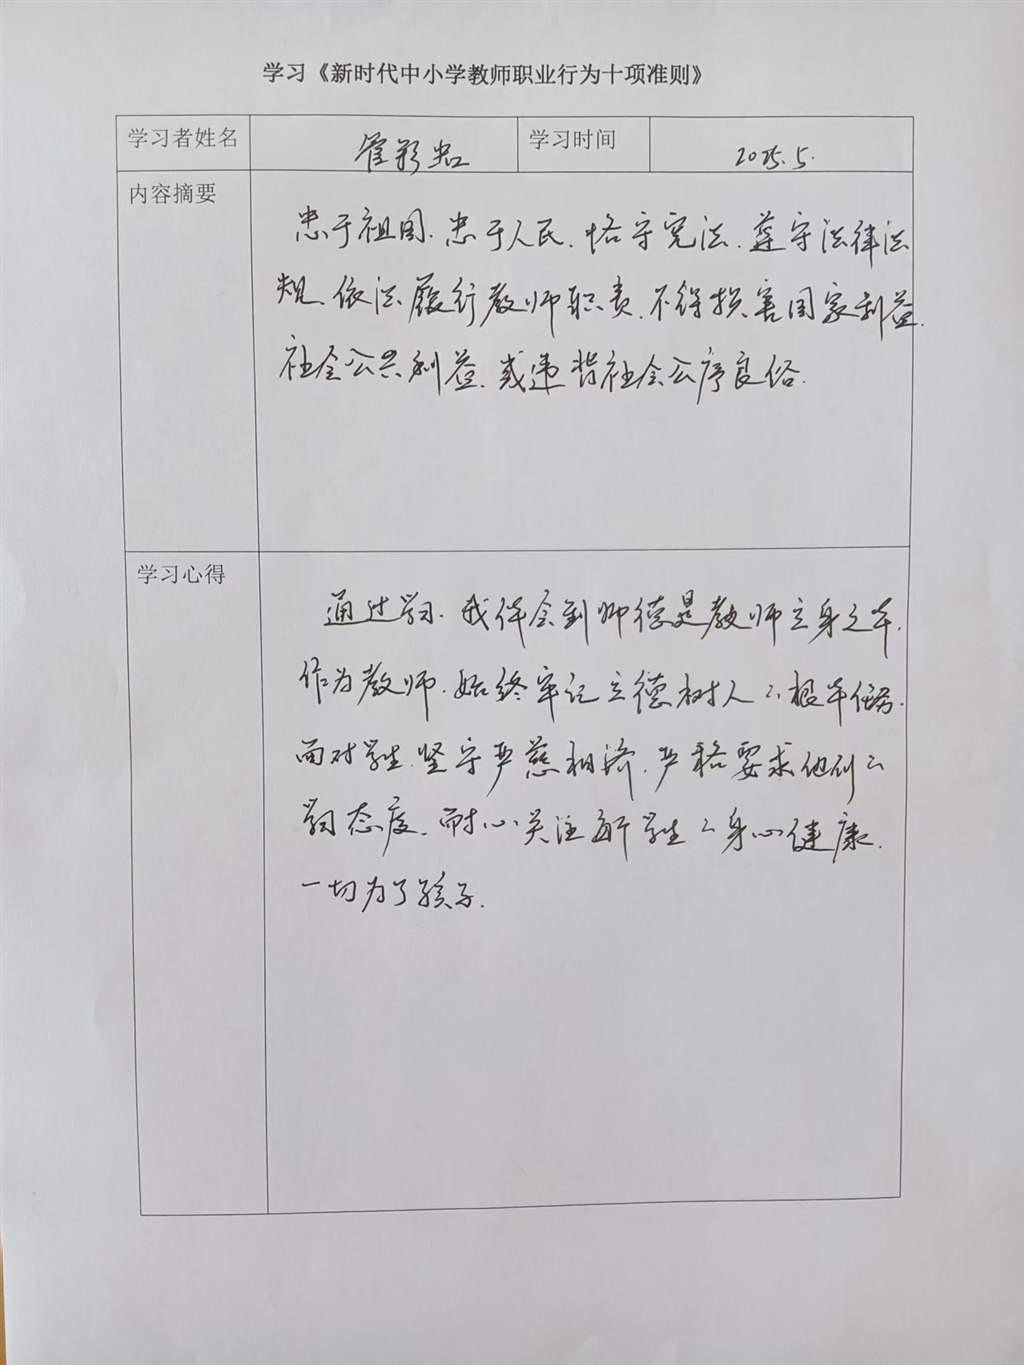 学习《新时代中小学教师职业行为十项准则》
学习者姓名 学习时间 2025.5.
内容摘要
忠于祖国、忠于人民、恪守宪法、遵守法律法
规、依法履行教师职责、不得损害国家利益、
社会公共利益、或违背社会公序良俗.
学习心得
通过学习、我体会到师德是教师立身之本.
作为教师、始终牢记立德树人的根本任务.
面对学生、坚守严慈相济、严格要求他们的
学习态度、耐心关注每个学生的身心健康.
一切为了孩子.